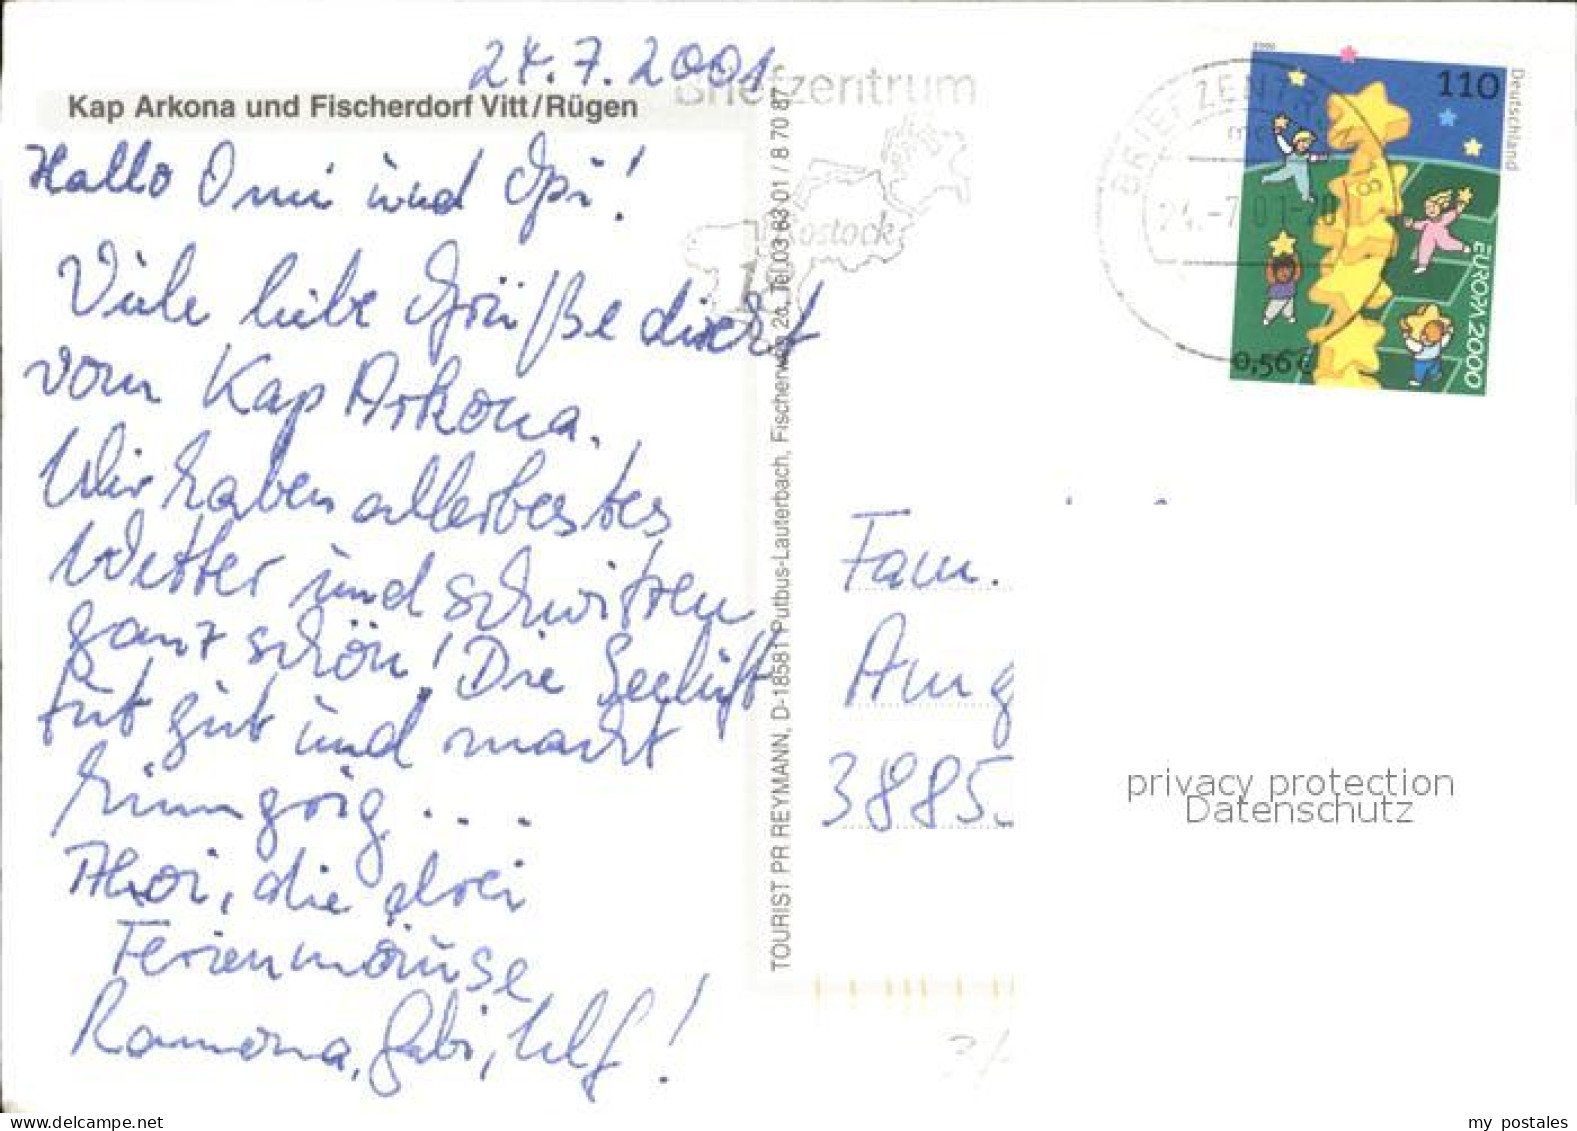 24.7.2001
Kap Arkona und Fischerdorf Vitt/Rügen
Hallo Omi und Opi!
Viele liebe Grüße direkt
vom Kap Arkona.
Wir haben allerbestes
Wetter und schwitzen
ganz schön! Die Seeluft
tut gut und macht
hungrig ...
Ahoi, die drei
Ferienmäuse
Ramona, Gabi, Ulf!
TOURIST PR REYMANN, D-18581 Putbus-Lauterbach, Fischerweg 2a, Tel 03 83 01 / 8 70 87
Briefzentrum
Rostock
BRIEFZENTRUM 18
24.-7.01-20
110
Deutschland
EUROPA 2000
0,56€
2000
Fam.
Aug
3885
privacy protection
Datenschutz
my postales